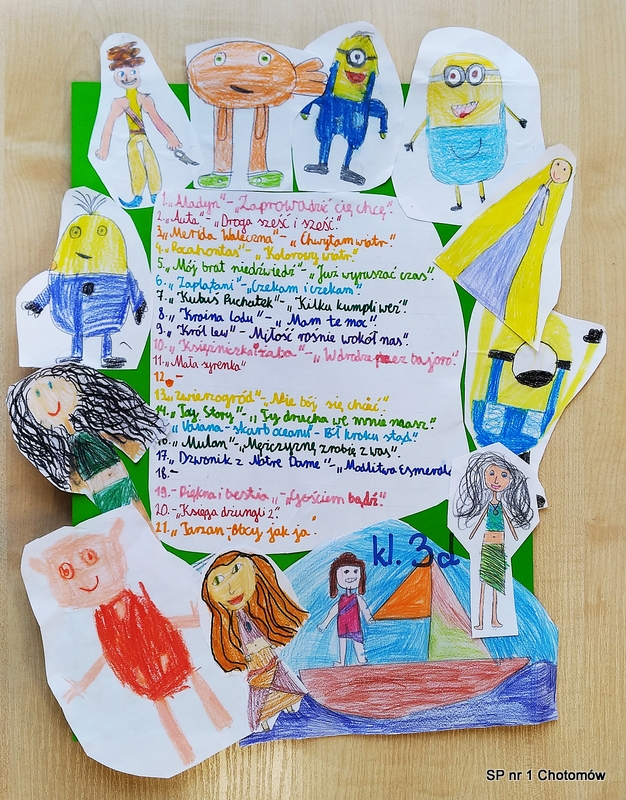 1. „Aladyn" - „Zaprowadzić cię chcę".
2. „Auta" - „Droga sześć i sześć".
3. „Merida Waleczna" - „Chwytam wiatr".
4. „Pocahontas" - „Kolorowy wiatr"
5. „Mój brat niedźwiedź" - „Już wyruszać czas".
6. „Zaplątani" - „Czekam i czekam".
7. „Kubuś Puchatek" - „Kilku kumpli weź".
8. „Kraina lodu" - „Mam tę moc".
9. „Król lew" - Miłość rośnie wokół nas".
10. „Księżniczka i żaba" - „W drodze przez bajoro".
11. „Mała syrenka"
12. -
13. „Zwierzogród" - „Nie bój się chcieć".
14. „Toy Story" - „Ty drucha we mnie masz".
15. „Vaiana - skarb oceanu" - Pół kroku stąd"
16. „Mulan" - „Mężczyznę zrobię z was".
17. „Dzwonik z Notre Dame" - „Modlitwa Esmerald
18. -
19. - Piękna i bestia „ - „Gościem bądź".
20. - „Księga dżungli 2".
21. „Tarzan - Obcy jak ja".
kl. 3d
SP nr 1 Chotomów